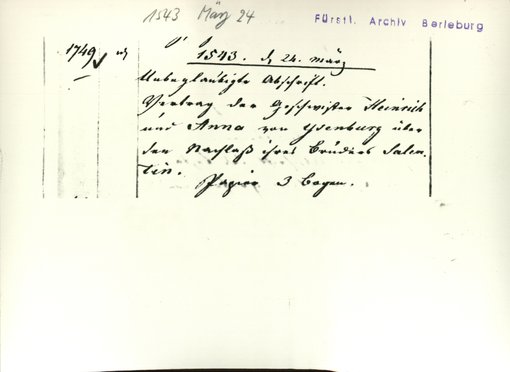 1543 März 24
Fürstl. Archiv Berleburg
1749
1543. d. 24. März
Unbeglaubigte Abschrift.
Vertrag der Geschwister Heinrich
und Anna von Ysenburg über
den Nachlaß ihres Bruders Salen-
tin.
Papier 3 Bogen.